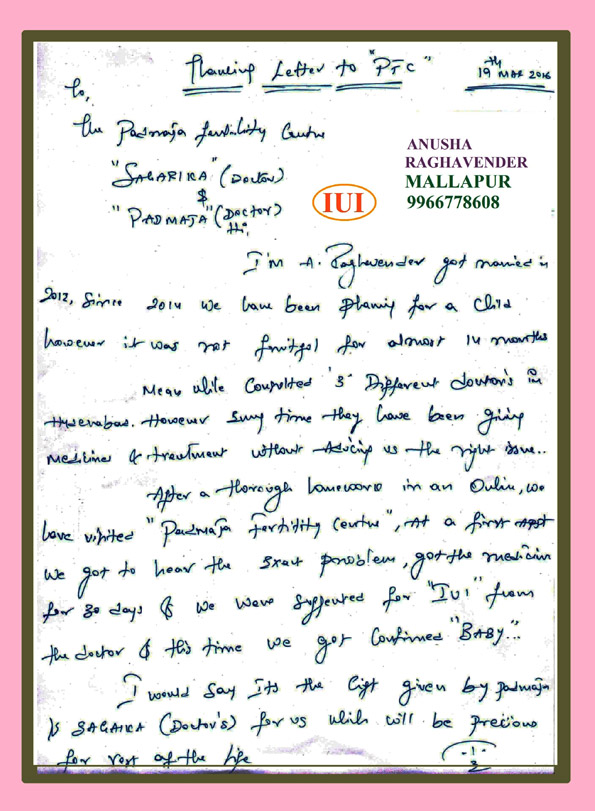 Thanking Letter to "PFC"
19th MAR 2016
To,
The Padmaja fertility Centre
"SAGARIKA" (Doctor)
&
"PADMAJA" (Doctor)
Hi,
ANUSHA
RAGHAVENDER
MALLAPUR
9966778608
IUI
I'm A. Raghavender got married in
2012, Since 2014 we have been planing for a child
however it was not for almost 14 months
Mean while Consulted '3' Different doctor's in
However time they have been giving
medicines & treatment without us the right
After a thorough homework in an Online, we
have visited "Padmaja Fertility Centre", At a first appt
we got to hear the Exact problem, got the medicin
for 30 days & we were for "IUI" from
the doctor & this time we got Confirmed "BABY..."
I would say Its the Gift given by padmaja
& SAGAIKA (Doctor's) for us which will be precious
for rest of the life
-1-
3